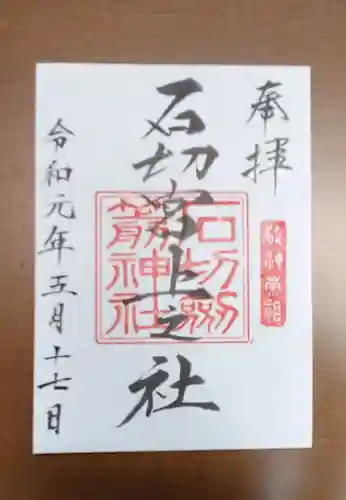 奉拝
石切宮上之社
石切劔
箭神社
令和元年五月十七日